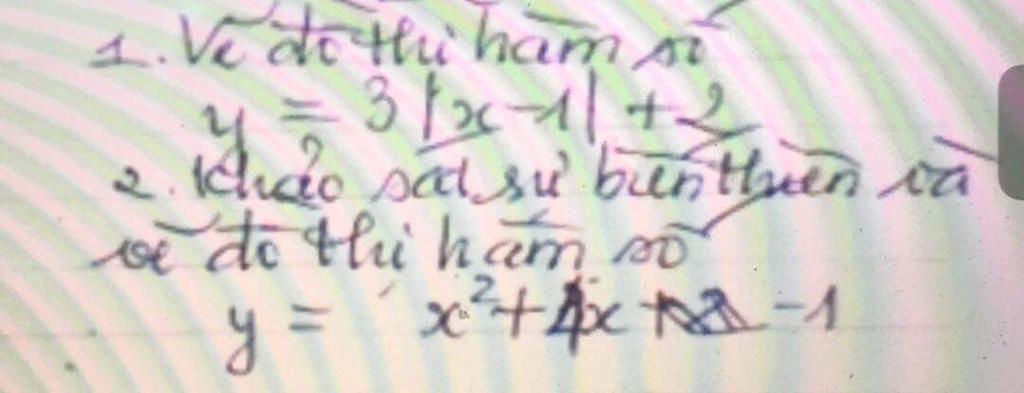 1. Vẽ đồ thị hàm số
y = 3|x-1| + 2
2. Khảo sát sự biến thiên và
vẽ đồ thị hàm số
y = x²+4x -1